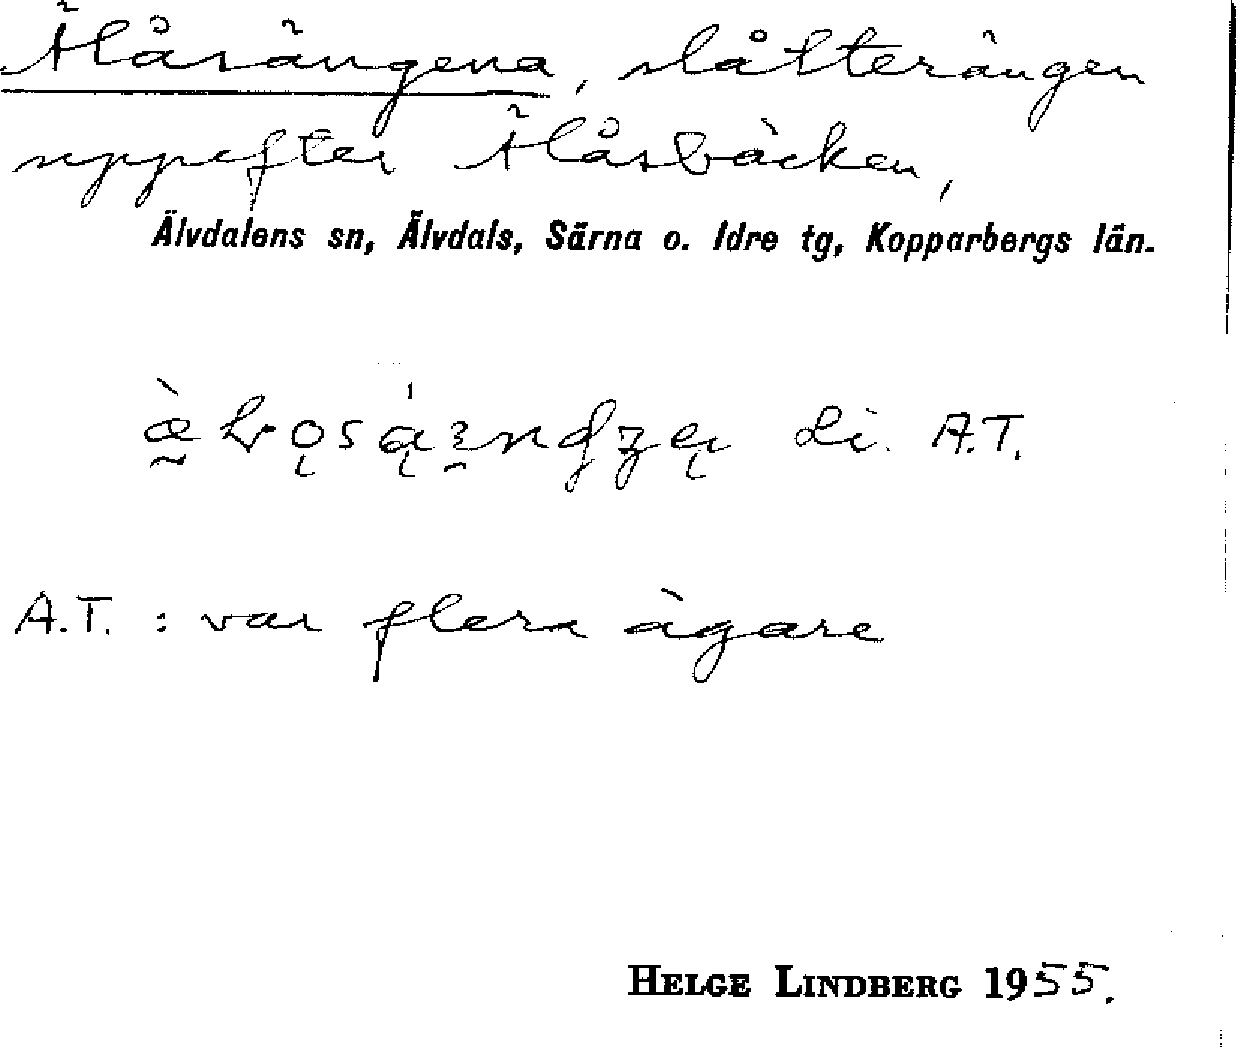 Älåsängena, slåtterängen
uppefter Älåsbäcken,
Älvdalens sn, Älvdals, Särna o. Idre tg, Kopparbergs län.
Li. A.T.
A.T. : var flera ägare
HELGE LINDBERG 1955.